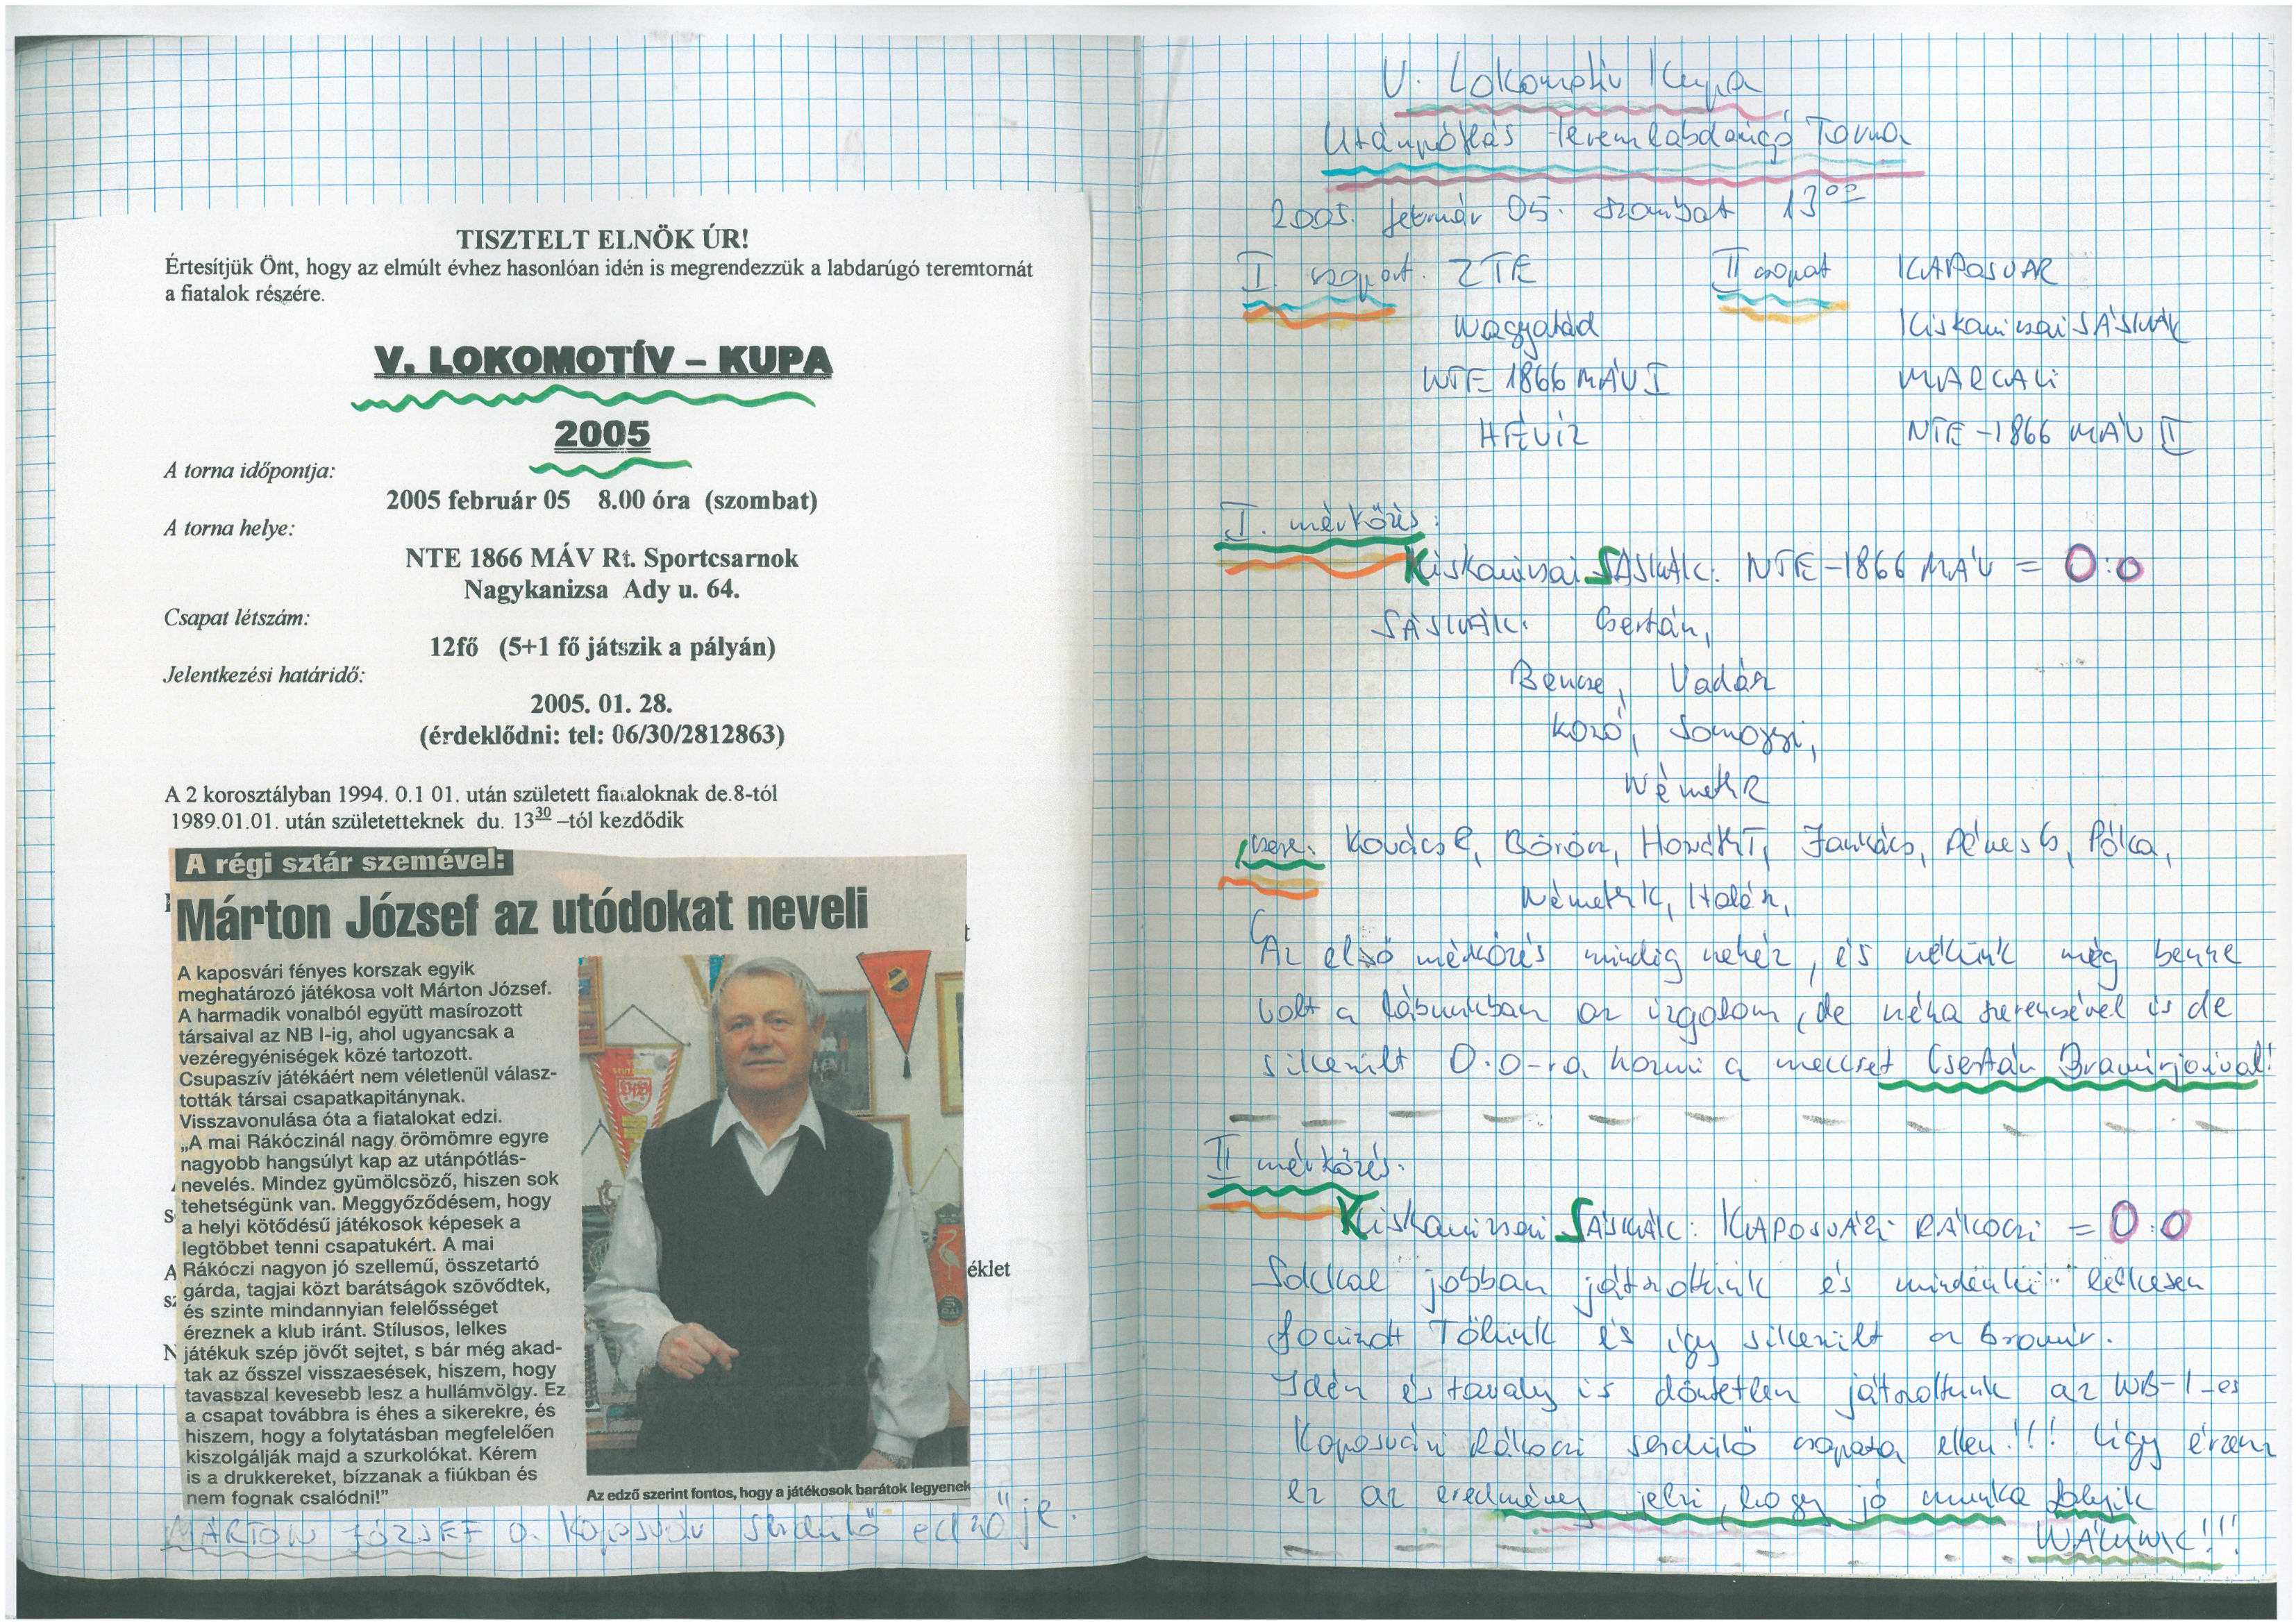 TISZTELT ELNÖK ÚR!
Értesítjük Önt, hogy az elmúlt évhez hasonlóan idén is megrendezzük a labdarúgó teremtornát
a fiatalok részére.
V. LOKOMOTÍV – KUPA
2005
A torna időpontja:
2005 február 05 8.00 óra (szombat)
A torna helye:
NTE 1866 MÁV Rt. Sportcsarnok
Nagykanizsa Ady u. 64.
Csapat létszám:
12fő (5+1 fő játszik a pályán)
Jelentkezési határidő:
2005. 01. 28.
(érdeklődni: tel: 06/30/2812863)
A 2 korosztályban 1994. 0.1 01. után született fiataloknak de.8-tól
1989.01.01. után születetteknek du. 13³⁰ –tól kezdődik
A régi sztár szemével:
Márton József az utódokat neveli
A kaposvári fényes korszak egyik
meghatározó játékosa volt Márton József.
A harmadik vonalból együtt masírozott
társaival az NB I-ig, ahol ugyancsak a
vezéregyéniségek közé tartozott.
Csupaszív játékáért nem véletlenül válasz-
tották társai csapatkapitánynak.
Visszavonulása óta a fiatalokat edzi.
„A mai Rákóczinál nagy örömömre egyre
nagyobb hangsúlyt kap az utánpótlás-
nevelés. Mindez gyümölcsöző, hiszen sok
tehetségünk van. Meggyőződésem, hogy
a helyi kötődésű játékosok képesek a
legtöbbet tenni csapatukért. A mai
Rákóczi nagyon jó szellemű, összetartó
gárda, tagjai közt barátságok szövődtek,
és szinte mindannyian felelősséget
éreznek a klub iránt. Stílusos, lelkes
játékuk szép jövőt sejtet, s bár még akad-
tak az ősszel visszaesések, hiszem, hogy
tavasszal kevesebb lesz a hullámvölgy. Ez
a csapat továbbra is éhes a sikerekre, és
hiszem, hogy a folytatásban megfelelően
kiszolgálják majd a szurkolókat. Kérem
is a drukkereket, bízzanak a fiúkban és
nem fognak csalódni!"
éklet
Az edző szerint fontos, hogy a játékosok barátok legyenek
MÁRTON JÓZSEF a. Kaposvár serdülő edzője.
V. Lokomotív Kupa
Utánpótlás teremlabdarúgó Torna
2005. február 05. szombat 13⁰⁰
I. csoport. ZTE
Nagyatád
NTE 1866 MÁV I
HÉVÍZ
II csopat KAPOSVÁR
Kiskanizsai SÁSKÁK
MARCALI
NTE -1866 MÁV II
I. mérkőzés:
Kiskanizsai SÁSKÁK: NTE-1866 MÁV = 0:0
SÁSKÁK: Csertán,
Bencze, Vadász
Kozó, Somogyi,
Németh R
csere: Kovács R, Börön, Horváth T, Jankács, Dénes G, Pólka,
Németh K, Halász,
Az első mérkőzés mindig nehéz, és nekünk még benne
volt a lábunkban az izgalom, de néha szerencsével is de
sikerült 0:0-ra hozni a meccset Csertán Bravúrjaival!
II mérkőzés.
Kiskanizsai SÁSKÁK: KAPOSVÁRI RÁKÓCZI = 0:0
Sokkal jobban játszottunk és mindenki lelkesen
focizott Tőlünk és így sikerült a bravúr.
Idén és tavaly is döntetlen játszottunk az NB-I-es
Kaposvári Rákóczi serdülő csapata ellen!!! Úgy érzem
ez az eredmény jelzi, hogy jó munka folyik
NÁLUNK!!!